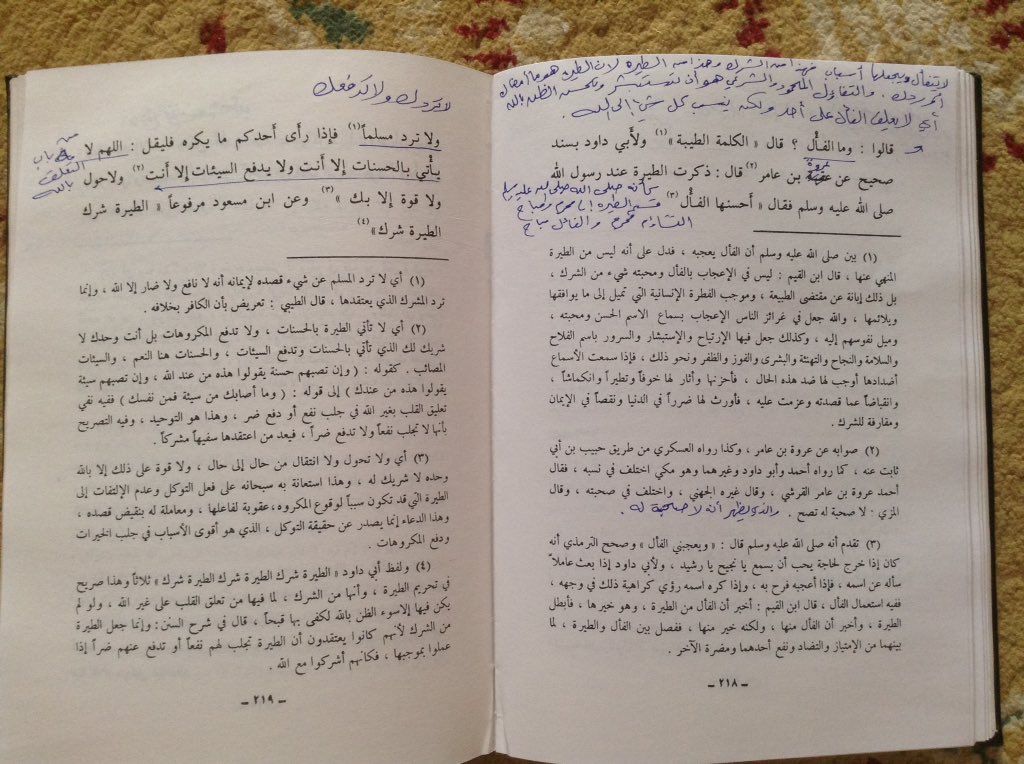 لا يتفائل ويجعلها أسباب فهذا من الشرك وهذا من الطيرة لأن الطيرة هو ما أمضاك
أو ردك . والتفاؤل المحمود والشرعي هو أن تستبشر وتحسن الظن بالله
أي لا يعلق الفأل على أحد ولكن ينسب كل شيء إلى الله .
قالوا : وما الفأل ؟ قال « الكلمة الطيبة » (١) ولأبي داود بسند
عروة
صحيح عن عقبة بن عامر (٢) قال : ذكرت الطيرة عند رسول الله
صلى الله عليه وسلم فقال « أحسنها الفأل (٣)
كأنه صلى الله عليه وسلم
قسم الطيرة إلى محرم ومباح
التشاؤم محرم والفائل مباح
(١) بين صلى الله عليه وسلم أن الفأل يعجبه ، فدل على أنه ليس من الطيرة
المنهي عنها ، قال ابن القيم : ليس في الإعجاب بالفأل ومحبته شيء من الشرك ،
بل ذلك إبانة عن مقتضى الطبيعة ، وموجب الفطرة الإنسانية التي تميل إلى ما يوافقها
ويلائمها ، والله جعل في غرائز الناس الإعجاب بسماع الاسم الحسن ومحبته ،
وميل نفوسهم إليه ، وكذلك جعل فيها الإرتياح والإستبشار والسرور باسم الفلاح
والسلامة والنجاح والتهنئة والبشرى والفوز والظفر ونحو ذلك ، فإذا سمعت الأسماع
أضدادها أوجب لها ضد هذه الحال ، فأحزنها وأثار لها خوفاً وتطيراً وانكماشاً ،
وانقباضاً عما قصدته وعزمت عليه ، فأورث لها ضرراً في الدنيا ونقصاً في الإيمان
ومقارفة للشرك .
(٢) صوابه عن عروة بن عامر ، وكذا رواه العسكري من طريق حبيب بن أبي
ثابت عنه ، كما رواه أحمد وأبو داود وغيرهما وهو مكي اختلف في نسبه ، فقال
أحمد عروة بن عامر القرشي ، وقال غيره الجهني ، واختلف في صحبته ، وقال
المزي : لا صحبة له تصح . والذي يظهر أنه لا صحبة له .
(٣) تقدم أنه صلى الله عليه وسلم قال : « ويعجبني الفأل » وصحح الترمذي أنه
كان إذا خرج لحاجة يحب أن يسمع يا نجيح يا رشيد ، ولأبي داود إذا بعث عاملاً
سأله عن اسمه ، فإذا أعجبه فرح به ، وإذا كره اسمه رؤي كراهية ذلك في وجهه ،
ففيه استعمال الفأل ، قال ابن القيم : أخبر أن الفأل من الطيرة ، وهو خيرها ، فأبطل
الطيرة ، وأخبر أن الفأل منها ، ولكنه خير منها ، ففصل بين الفأل والطيرة ، لما
بينهما من الإمتياز والتضاد ونفع أحدهما ومضرة الآخر .
ـ ٢١٨ ـ
لا تردك ولا تدفعك
ولا ترد مسلماً (١) فإذا رأى أحدكم ما يكره فليقل : اللهم لا
من باب
التعلق
بالله
يأْتي بالحسنات إلا أنت ولا يدفع السيئات إلا أنت (٢) ولاحول
ولا قوة إلا بك » (٣) وعن ابن مسعود مرفوعاً « الطيرة شرك
الطيرة شرك » (٤)
(١) أي لا ترد المسلم عن شيء قصده لإيمانه أنه لا نافع ولا ضار إلا الله ، وإنما
ترد المشرك الذي يعتقدها ، قال الطيبي : تعريض بأن الكافر بخلافه .
(٢) أي لا تأتي الطيرة بالحسنات ، ولا تدفع المكروهات بل أنت وحدك لا
شريك لك الذي تأتي بالحسنات وتدفع السيئات ، والحسنات هنا النعم ، والسيئات
المصائب . كقوله : ( وإن تصبهم حسنة يقولوا هذه من عند الله ، وإن تصبهم سيئة
يقولوا هذه من عندك ) إلى قوله : ( وما أصابك من سيئة فمن نفسك ) ففيه نفي
تعليق القلب بغير الله في جلب نفع أو دفع ضر ، وهذا هو التوحيد ، وفيه التصريح
بأنها لا تجلب نفعاً ولا تدفع ضراً ، فيعد من اعتقدها سفيهاً مشركاً .
(٣) أي ولا تحول ولا انتقال من حال إلى حال ، ولا قوة على ذلك إلا بالله
وحده لا شريك له ، وهذا استعانة به سبحانه على فعل التوكل وعدم الإلتفات إلى
الطيرة التي قد تكون سبباً لوقوع المكروه، عقوبة لفاعلها ، ومعاملة له بنقيض قصده ،
وهذا الدعاء إنما يصدر عن حقيقة التوكل ، الذي هو أقوى الأسباب في جلب الخيرات
ودفع المكروهات .
(٤) ولفظ أبي داود « الطيرة شرك الطيرة شرك الطيرة شرك » ثلاثاً وهذا صريح
في تحريم الطيرة ، وأنها من الشرك ، لما فيها من تعلق القلب على غير الله ، ولو لم
يكن فيها إلاسوء الظن بالله لكفى بها قبحاً ، قال في شرح السنن: وإنما جعل الطيرة
من الشرك لأنهم كانوا يعتقدون أن الطيرة تجلب لهم نفعاً أو تدفع عنهم ضراً إذا
عملوا بموجبها ، فكأنهم أشركوا مع الله .
ـ ٢١٩ ـ